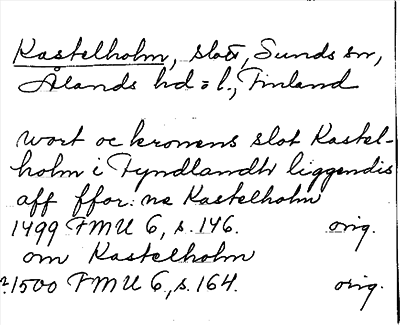 Kastelholm, slott, Sunds sn,
Ålands hd o l., Finland
wort oc kronens slot Kastel-
holm i Fyndlandh liggendis
aff ffor: ne Kastelholm
1499 FMU 6, s. 146. orig.
om Kastelholm
1500 FMU 6, s. 164. orig.